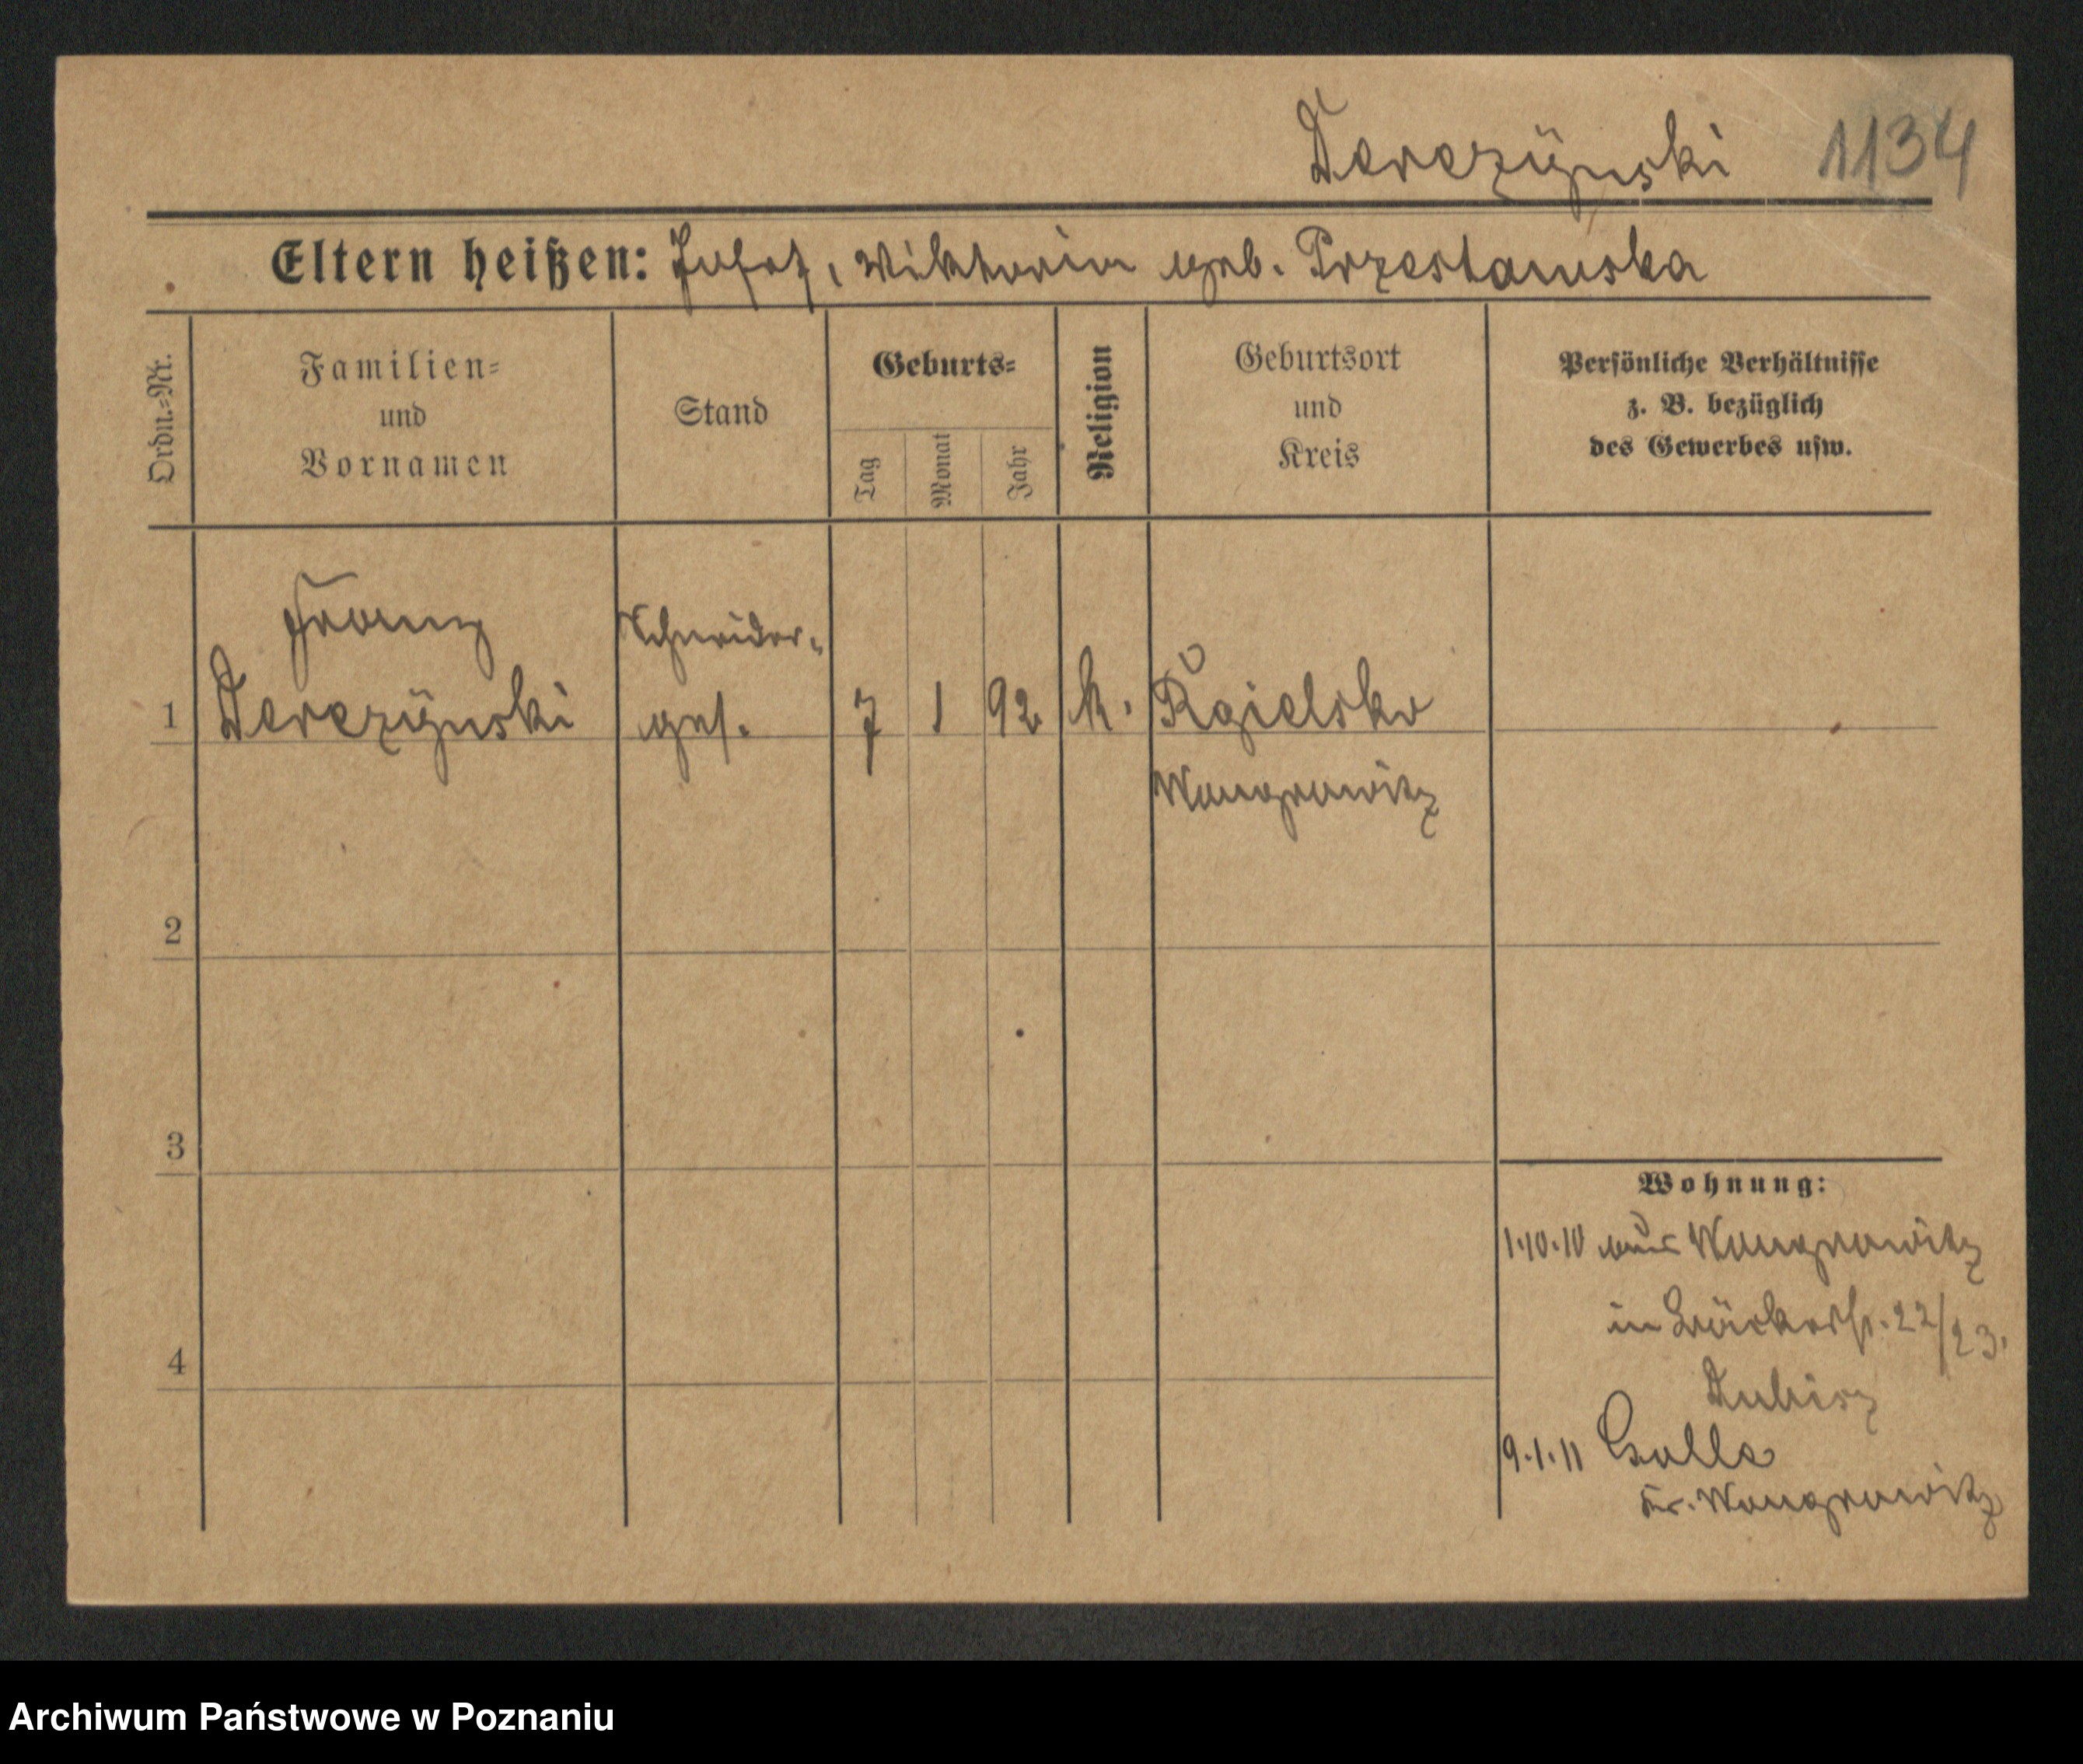 Derezyński 1134
Eltern heißen: Josef, Wiktoria geb. Przestawska
Ordn.-Nr.
Familien-
und
Vornamen
Stand
Geburts-
Tag
Monat
Jahr
Religion
Geburtsort
und
Kreis
Persönliche Verhältnisse
z. B. bezüglich
des Gewerbes usw.
Franz
Schneider-
1 Derezyński ges. 7 1 92 k. Rgielsko
Wongrowitz
2
3
4
Wohnung:
1.10.10 aus Wongrowitz
in Bäckerstr. 22/23.
9.1.11
Kr. Wongrowitz
Archiwum Państwowe w Poznaniu